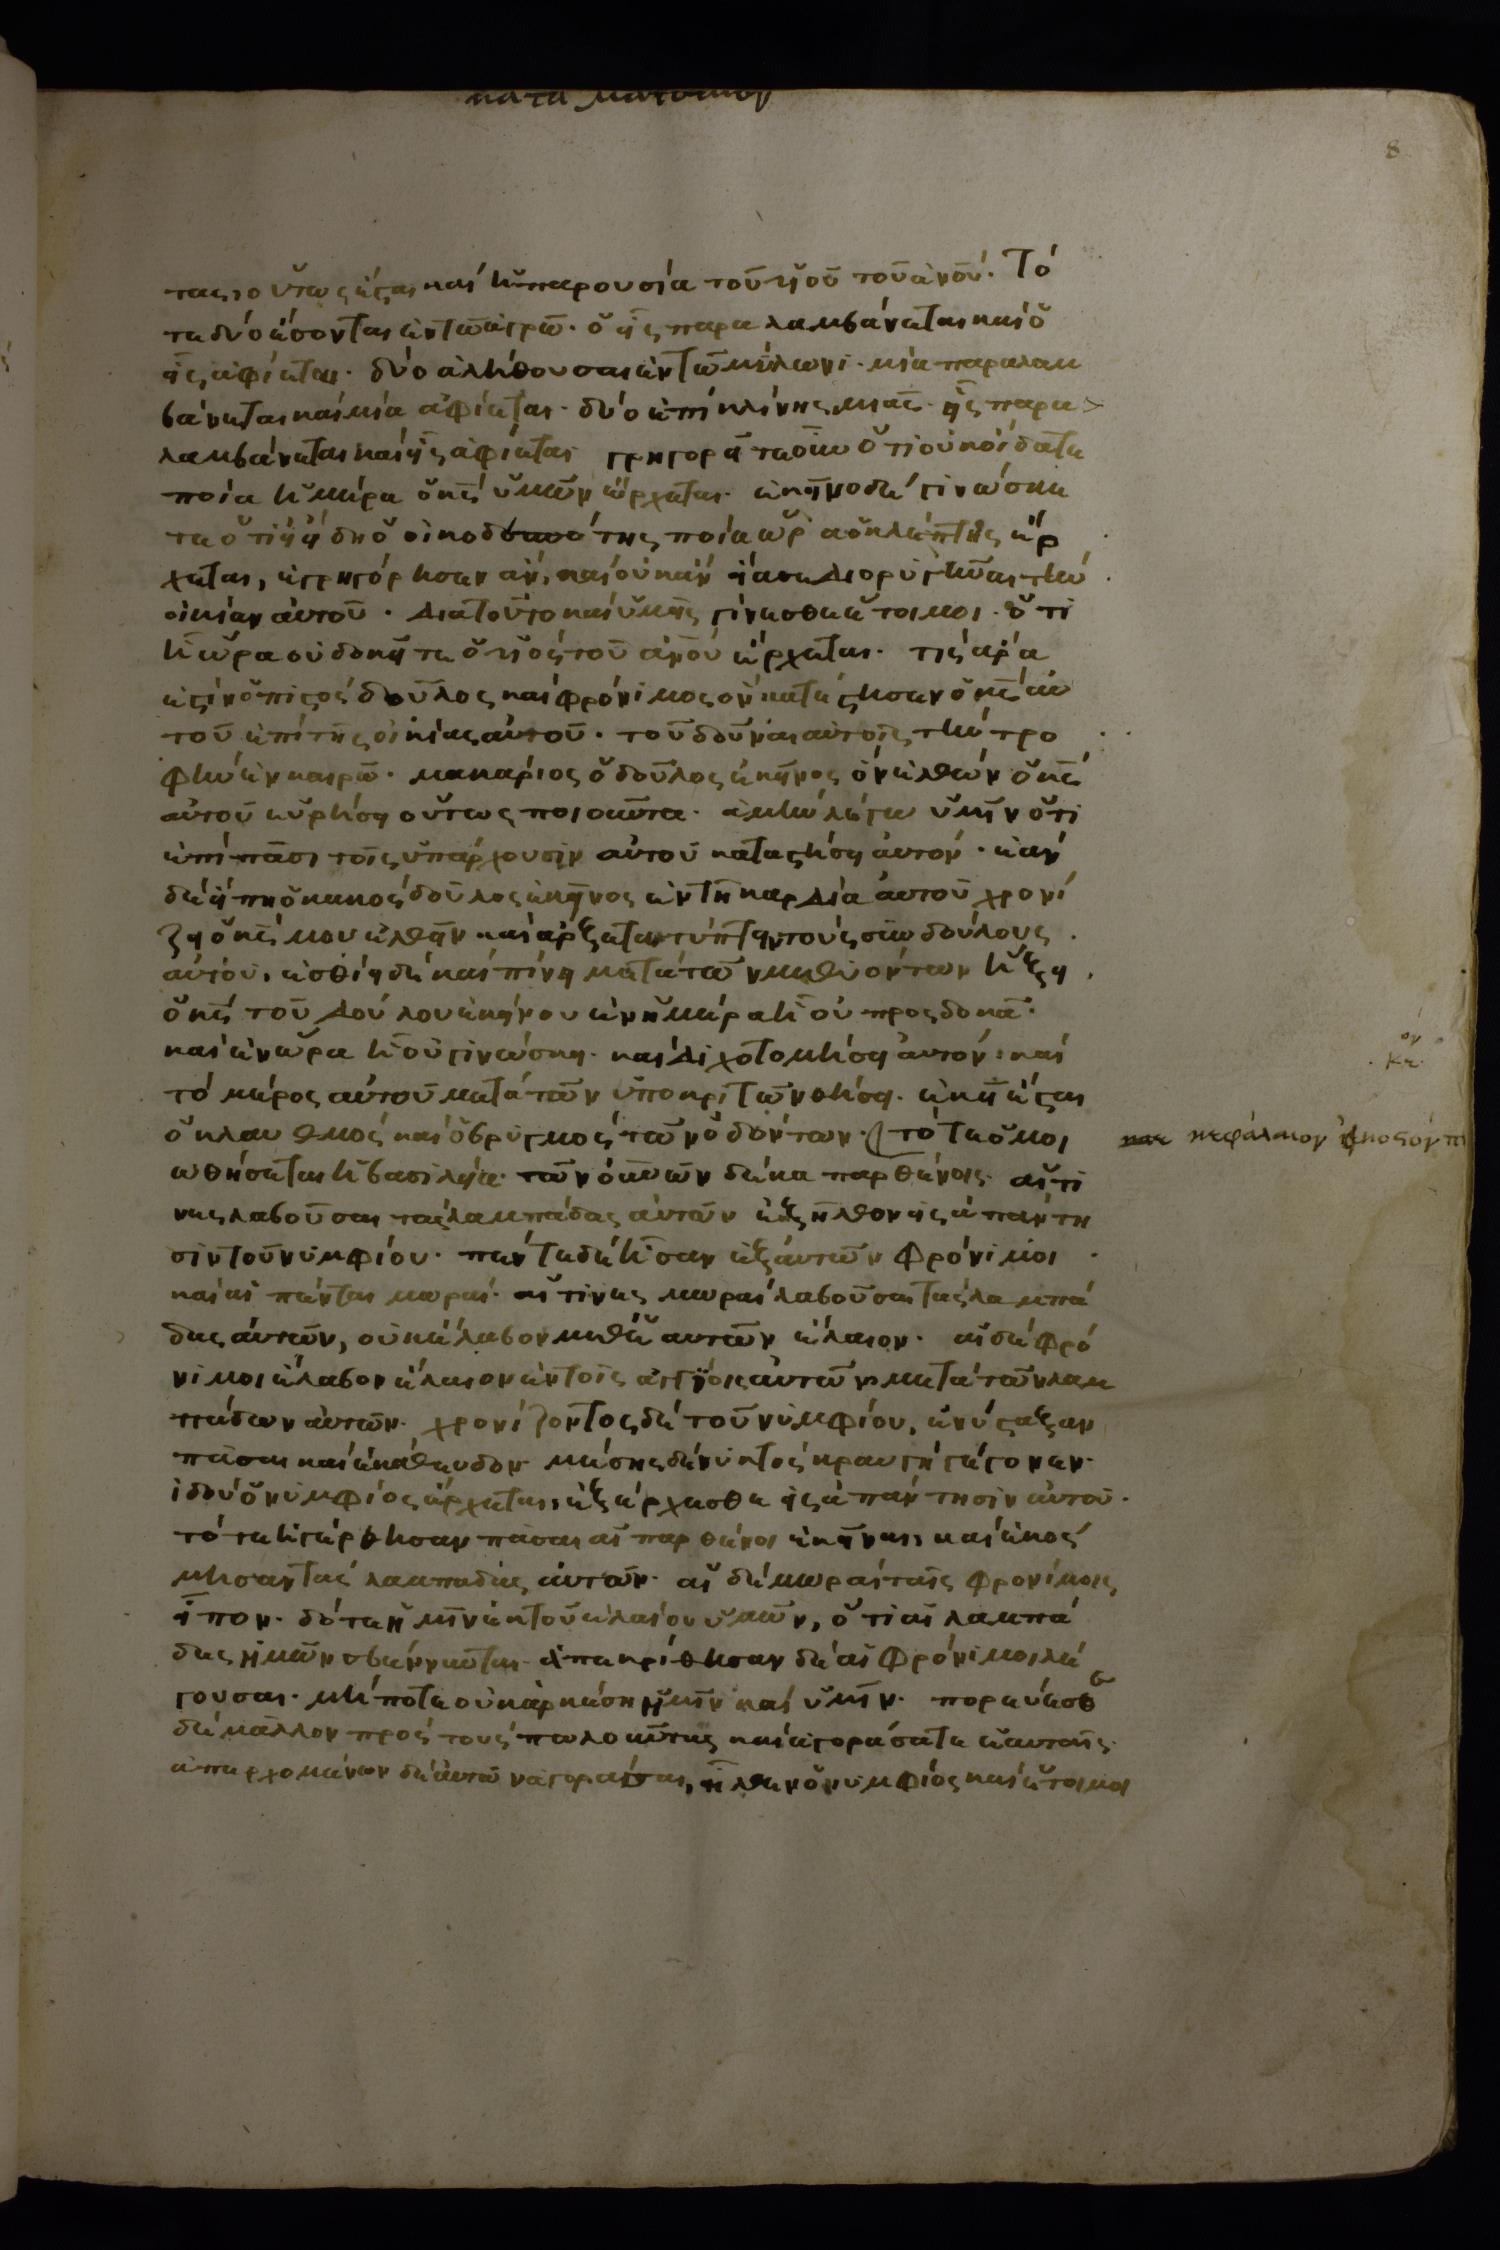 κατα ματθαιον
8
τας, οὕτως ἔσται καὶ ἡ παρουσία τοῦ υἱοῦ τοῦ ἀνου. Τό
τε δύο ἔσονται ἐν τῶ ἀγρῶ. ὁ εἷς παραλαμβάνεται καὶ ὁ
εἷς ἀφίεται. δύο ἀλήθουσαι ἐν τῶ μύλωνι. μία παραλαμ
βάνεται καὶ μία ἀφίεται. δύο ἐπὶ κλίνης μιᾶς. εἷς παρα
λαμβάνεται καὶ εἷς ἀφίεται γρηγορεῖτε οὖν ὅτι οὐκ οἴδατε
ποία ἡμέρα ὁ κς ὑμῶν ἔρχεται. ἐκεῖνο δὲ γινώσκε
τε ὅτι εἰ ἤδει ὁ οἰκοδεσπότης ποία ὥρα ὁ κλέπτης ἔρ
χεται, ἐγρηγόρησεν ἄν, καὶ οὐκ ἂν εἴασε διορυγῆναι τὴν
οἰκίαν αὐτοῦ. διατοῦτο καὶ ὑμεῖς γίνεσθε ἕτοιμοι. ὅτι
ἧ ὥρα οὐ δοκεῖτε ὁ υἱὸς τοῦ ἀνου ἔρχεται. τίς ἄρα
ἐστὶν ὁ πιστὸς δοῦλος καὶ φρόνιμος ὃν κατέστησεν ὁ κς αὐ
τοῦ ἐπὶ τῆς οἰκίας αὐτοῦ. τοῦ δοῦναι αὐτοῖς τὴν τρο
φὴν ἐν καιρῶ. μακάριος ὁ δοῦλος ἐκεῖνος ὃν ἐλθὼν ὁ κς
αὐτοῦ εὑρήσει οὕτως ποιοῦντα. ἀμὴν λέγω ὑμῖν ὅτι
ἐπὶ πᾶσι τοῖς ὑπάρχουσιν αὐτοῦ καταστήσει αὐτόν. ἐὰν
δὲ εἴπη ὁ κακὸς δοῦλος ἐκεῖνος ἐν τῆ καρδία αὐτοῦ χρονί
ζει ὁ κς μου ἐλθεῖν καὶ ἄρξεται τύπτειν τοὺς συνδούλους
αὐτοῦ, ἐσθίει δὲ καὶ πίνει μετὰ τῶν μεθυόντων ἥξει
ὁ κς τοῦ δούλου ἐκείνου ἐν ἡμέρα ἧ οὐ προςδοκᾶ.
καὶ ἐν ὥρα ἧ οὐ γινώσκει. καὶ διχοτομήσει αὐτόν. καὶ
τὸ μέρος αὐτοῦ μετὰ τῶν ὑποκριτῶν θήσει. ἐκεῖ ἔσται
ὁ κλαυθμὸς καὶ ὁ βρυγμὸς τῶν ὀδόντων. τότε ὁμοι
ον
κε.
κεφάλαιον εἰκοστόν π
ωθήσεται ἡ βασιλεία τῶν οὐνων δέκα παρθένοις. αἵτι
νες λαβοῦσαι τὰς λαμπάδας αὐτῶν ἐξῆλθον εἰς ἀπάντη
σιν τοῦ νυμφίου. πέντε δὲ ἦσαν ἐξ αὐτῶν φρόνιμοι
καὶ αἱ πέντε μωραί. αἵτινες μωραὶ λαβοῦσαι τὰς λαμπά
δας αὐτῶν, οὐκ ἔλαβον μεθ' ἑαυτῶν ἔλαιον. αἱ δὲ φρό
νιμοι ἔλαβον ἔλαιον ἐν τοῖς ἀγγείοις αὐτῶν μετὰ τῶν λαμ
πάδων αὐτῶν. χρονίζοντος δὲ τοῦ νυμφίου, ἐνύσταξαν
πᾶσαι καὶ ἐκάθευδον μέσης δὲ νυκτὸς κραυγὴ γέγονεν.
ἰδοὺ ὁ νυμφίος ἔρχεται, ἐξέρχεσθε εἰς ἀπάντησιν αὐτοῦ.
τότε ἠγέρθησαν πᾶσαι αἱ παρθένοι ἐκεῖναι, καὶ ἐκόσ
μησαν τὰς λαμπάδας αὐτῶν. αἱ δὲ μωραὶ ταῖς φρονίμοις
εἶπον. δότε ἡμῖν ἐκ τοῦ ἐλαίου ὑμῶν, ὅτι αἱ λαμπά
δες ἡμῶν σβέννυνται. ἀπεκρίθησαν δὲ αἱ φρόνιμοι λέ
γουσαι. μήποτε οὐκ ἀρκέση ἡμῖν καὶ ὑμῖν. πορεύεσθ
δὲ μᾶλλον πρὸς τοὺς πωλοῦντας καὶ ἀγοράσατε ἑαυταῖς.
ἀπερχομένων δὲ αὐτῶν ἀγοράσαι, ἦλθεν ὁ νυμφίος καὶ ἕτοιμοι